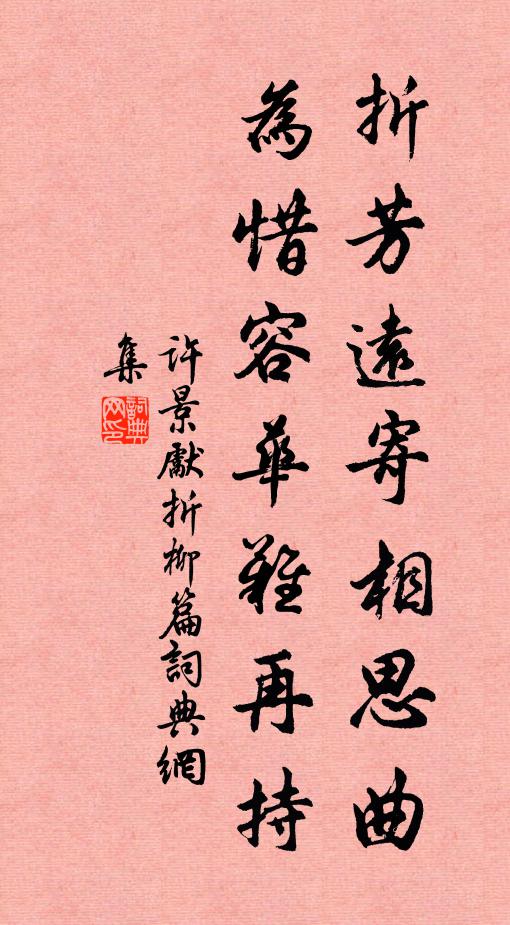 折芳遠寄相思曲
為惜容華難再持
許景獻折柳篇詞典網
集
詞典
网印